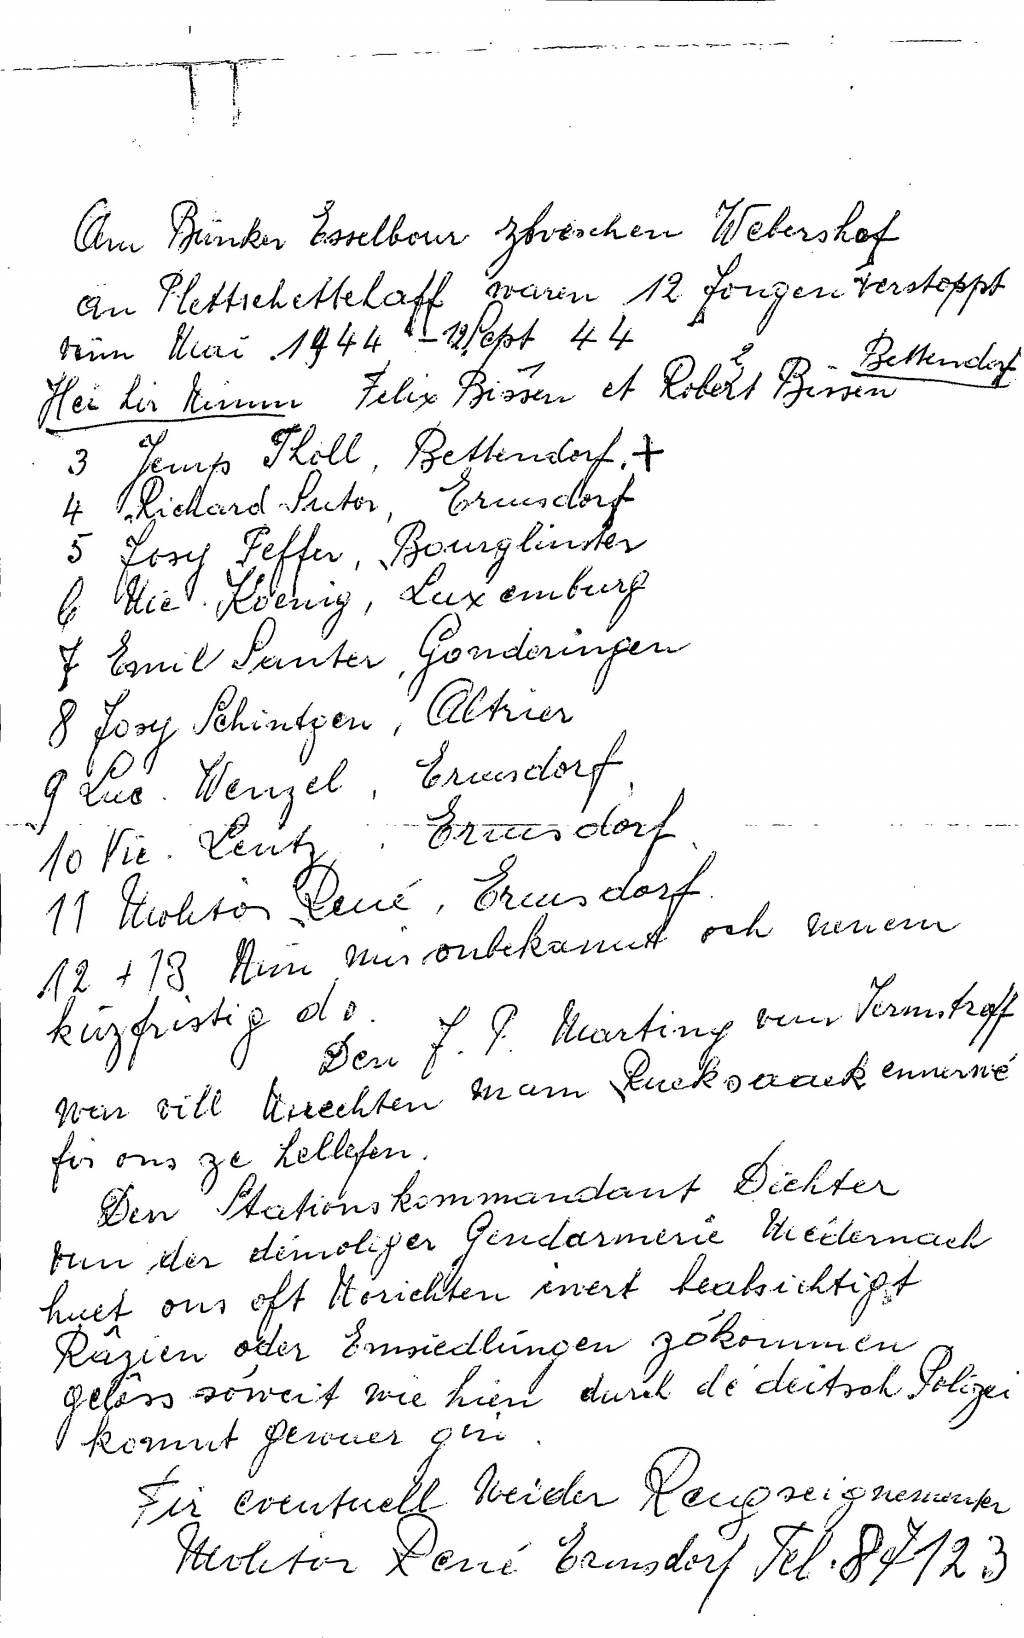 Am Bunker Esselbour zweschen Webershof
an Plettschettehaff waren 12 Jongen verstoppt
vum Mai 1944 – 12 Sept 44
Hei hir Nimm Felix Bissen 1 et Robert Bissen 2 Bettendorf
3 Jemp Tholl, Bettendorf. +
4 Richard Sutor, Ermsdorf
5 Josy Feffer, Bourglinster
6 Nic. Koenig, Luxemburg
7 Emil Santer, Gonderingen
8 Josy Schintgen, Altrier
9 Luc. Wenzel, Ermsdorf
10 Vic. Lentz, Ermsdorf
11 Molitor René, Ermsdorf.
12 + 13 Nim mir onbekannt och nemmen
kuzfristig do.
Den J. P. Marting vum
war vill Nuechten mam Rucksaack ennerwé
fir ons ze hellefen.
Den Stationskommandant Dichter
vun der démoliger Gendarmerie Medernach
huet ons oft Norichten iwert beabsichtigt
Râzien oder Emsiedlungen zókommen
geloss soweit wie hien durch dé deitsch Polizei
konnt gewuer gin.
Fir eventuell weider Rengseignementer
Molitor René Ermsdorf Tel. 87123